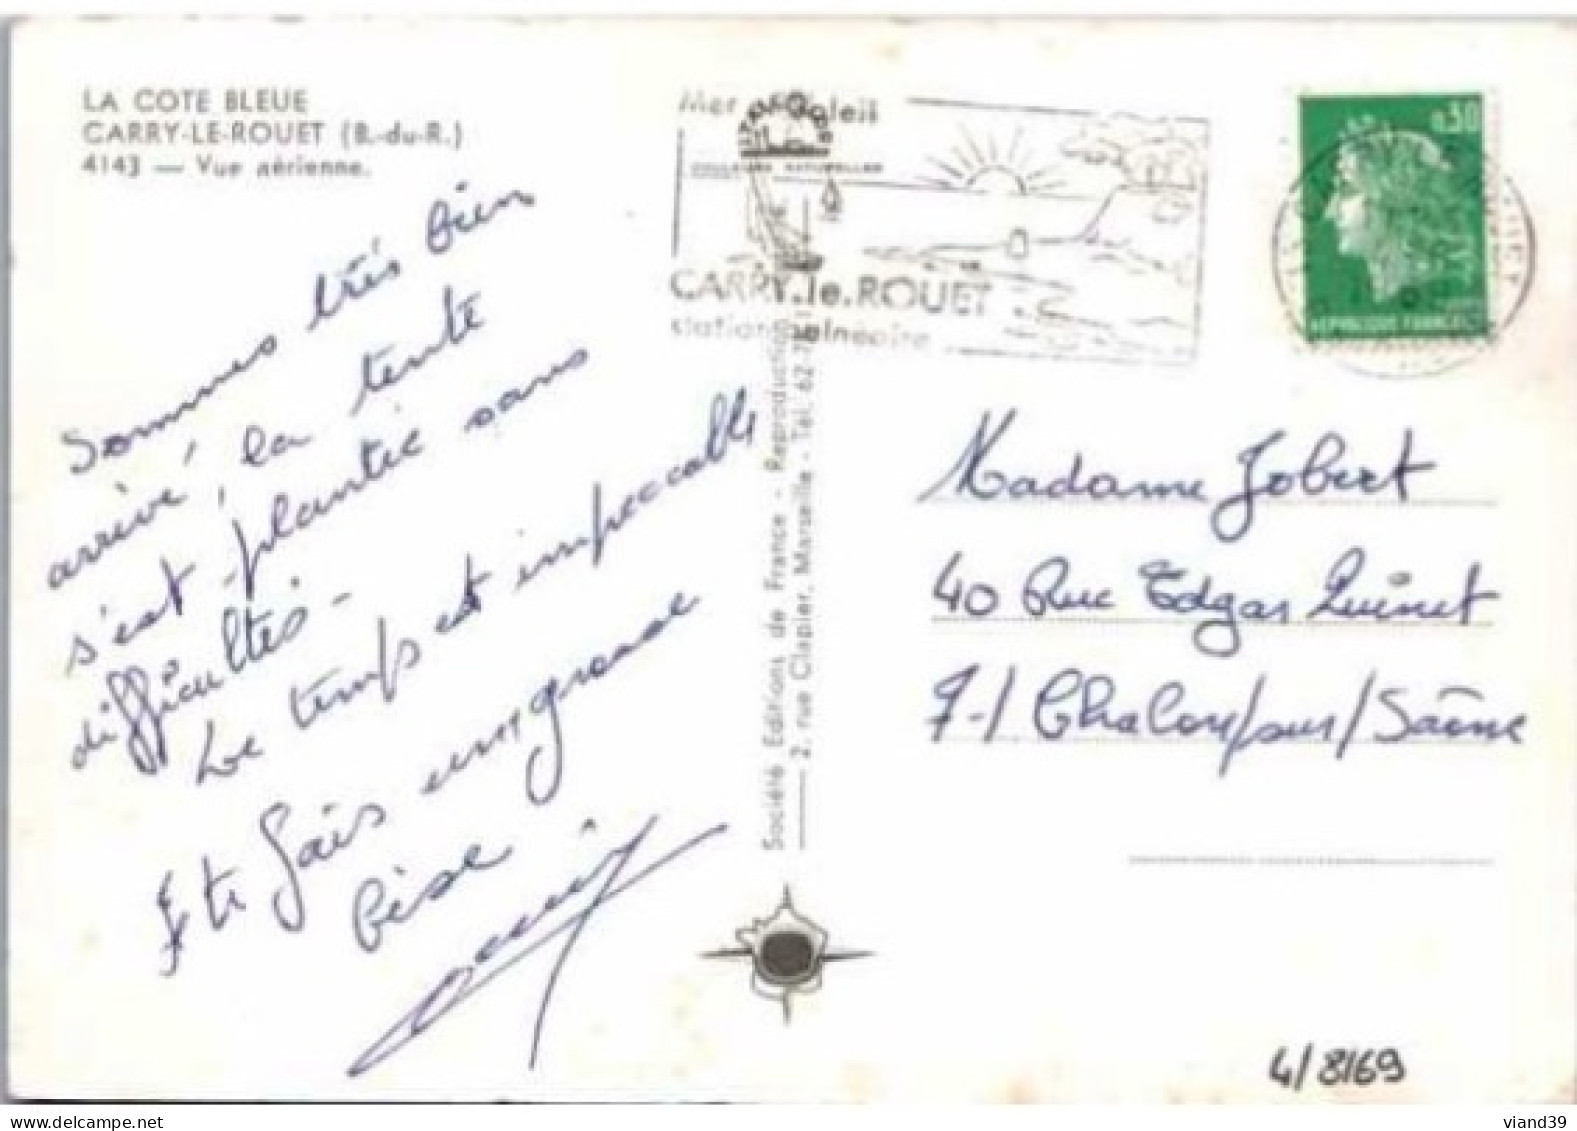 LA COTE BLEUE
CARRY-LE-ROUET (B.-du-R.)
4143 — Vue aérienne.
Sommes très bien
arrivé, la tente
s'est plantée sans
difficultés -
Le temps est impeccable
te fais une grosse
bise
Mer Soleil
CARRY.le.ROUET
station balnéaire
0,30
REPUBLIQUE FRANC
Société Editions de France - Reproduction
2, rue Clapier, Marseille - Tél. 62-7
Madame Jobert
40 Rue Edgar Quinet
71 Chalon/sur/Saône
4/8/69
viand39